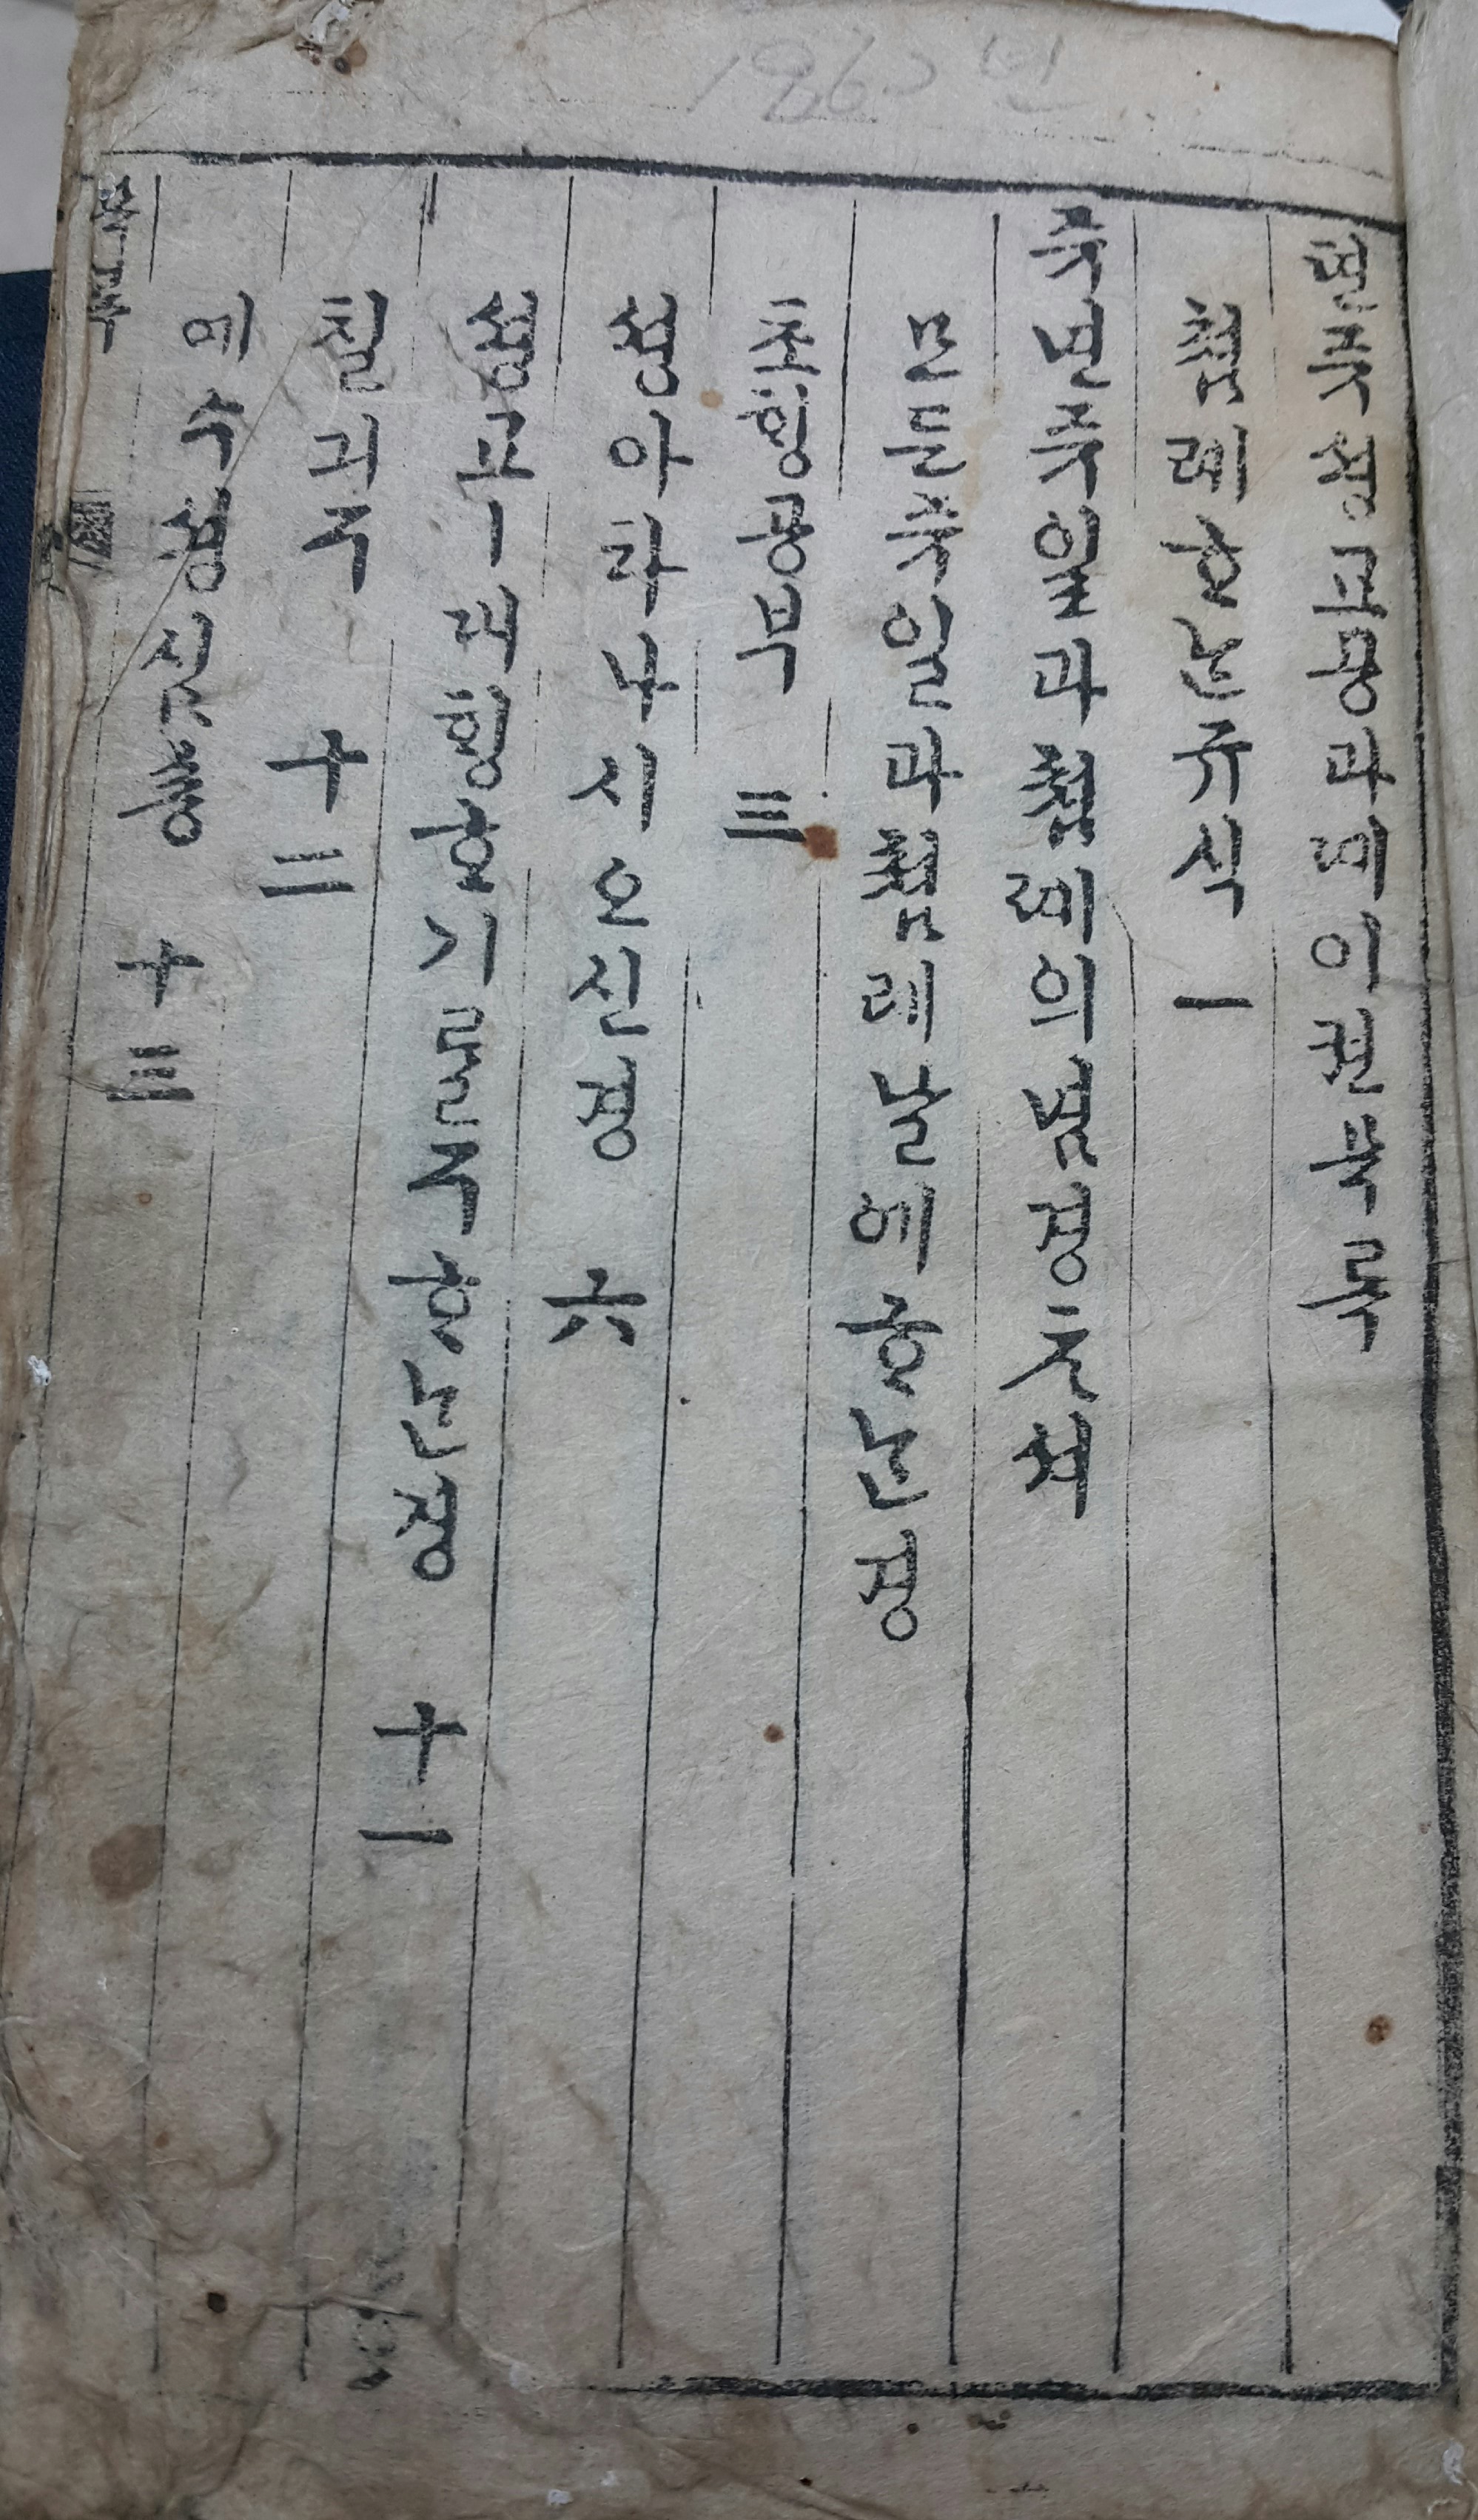 텬쥬셩교공과뎨이권목록
쳠례ᄒᆞᄂᆞᆫ규식 一
쥬년쥬일과쳠례의념경ᄎᆞ셔
모든쥬일과쳠례날에ᄒᆞᄂᆞᆫ경
초ᄒᆡᆼ공부 三
셩아타나시오신경 六
셩교ㅣ대ᄒᆡᆼᄒᆞ기를구ᄒᆞᄂᆞᆫ경 十一
칠긔구 十二
예수셩심 十三